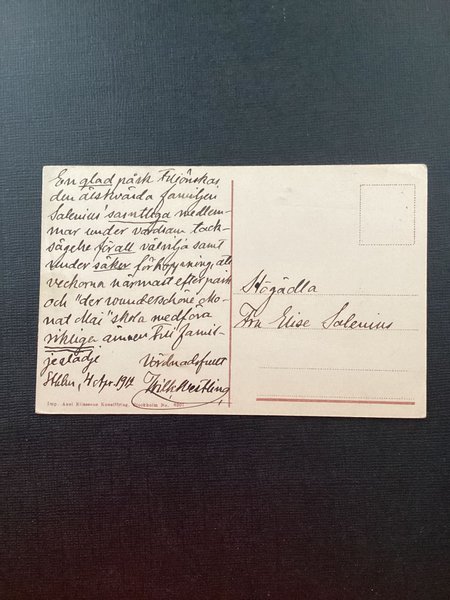 En glad påsk tillönskas
den älskvärda familjen
Salenius' samtliga medlem-
mar under vördsam tack-
sägelse för all välvilja samt
under säker förhoppning, att
veckorna närmast efter påsk
och "der wunderschöne Mo-
nat Mai" skola medföra
riktiga ämnen till famil-
jeglädje
Vördnadsfullt
Sthlm, 4 Apr. 1914
Högädla
Fru Elise Salenius
Imp. Axel Eliassons Konstförlag, Stockholm No.